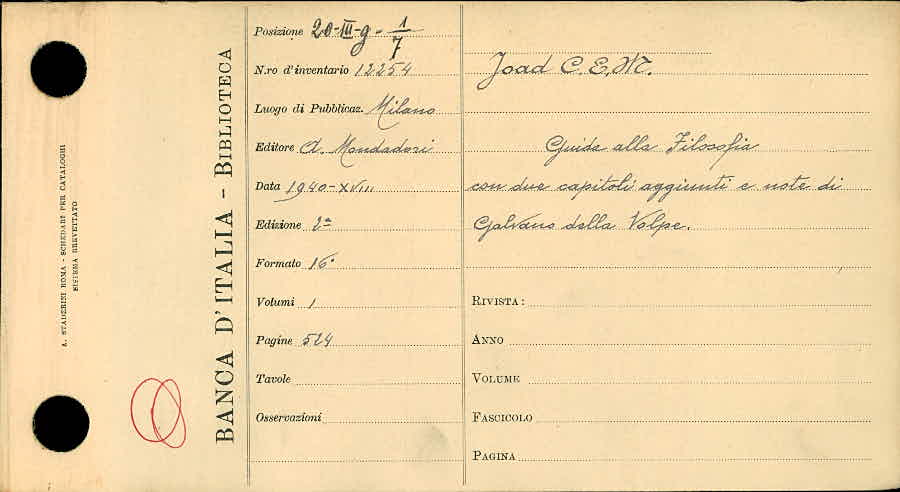 A. STADERINI ROMA - SCHEDARI PER CATALOGHI
SISTEMA BREVETTATO
BANCA D'ITALIA - BIBLIOTECA
Posizione 20-III-g-1/7
N.ro d'inventario 12254
Luogo di Pubblicaz. Milano
Editore A. Mondadori
Data 1940-XVIII
Edizione 2ª
Formato 16°
Volumi 1
Pagine 524
Tavole
Osservazioni
Joad C. E. M.
Guida alla Filosofia
con due capitoli aggiunti e note di
Galvano della Volpe.
RIVISTA:
ANNO
VOLUME
FASCICOLO
PAGINA